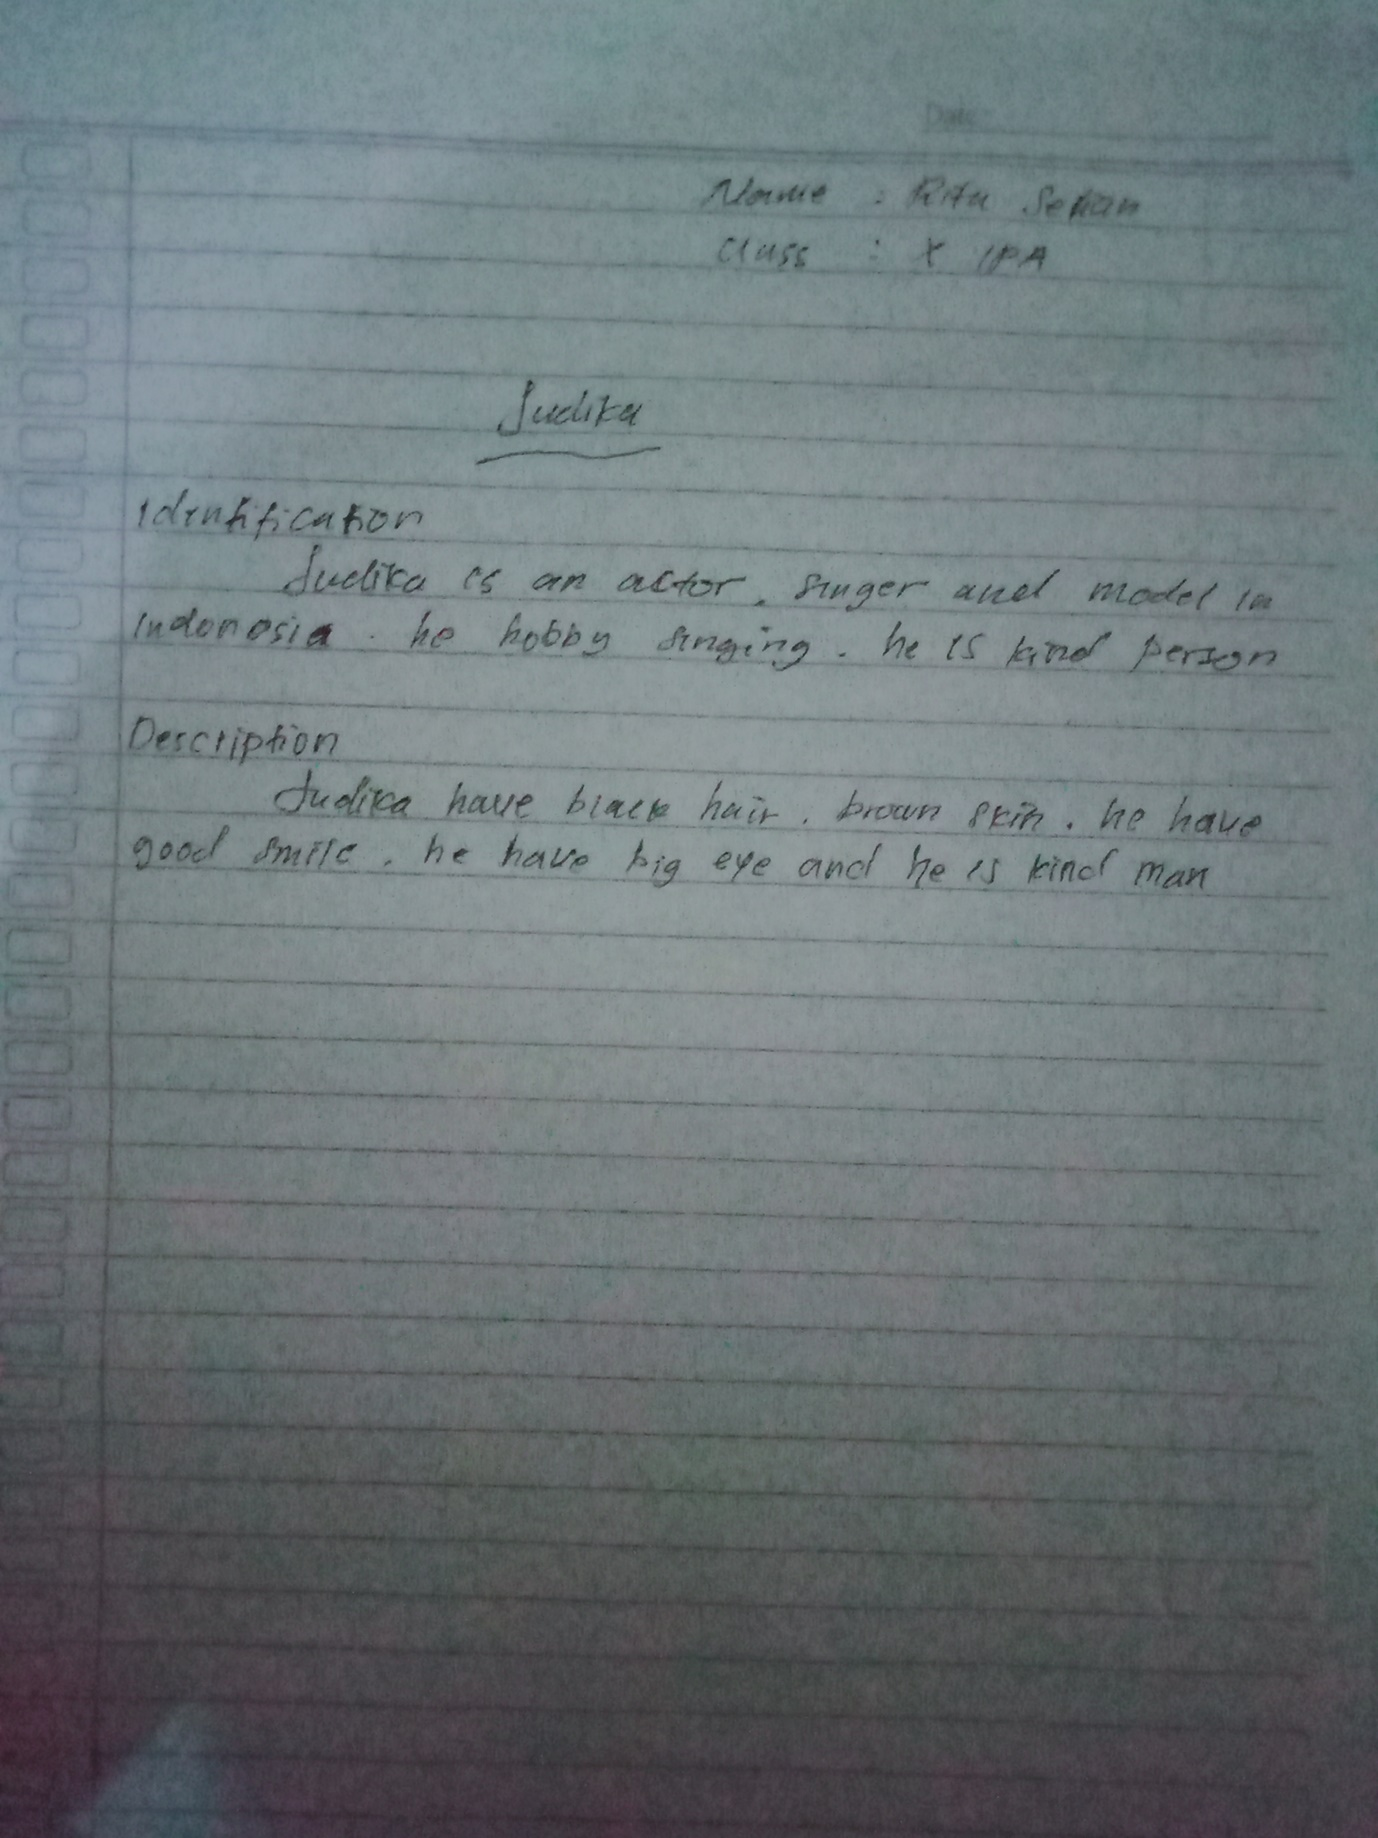 Date
Name : Ritu
Class : X IPA
Judika
Identification
Judika is an actor, singer and model in
Indonosia. he hobby singing. he is kind person
Description
Judika have black hair, brown skin. he have
good smile, he have big eye and he is kind man